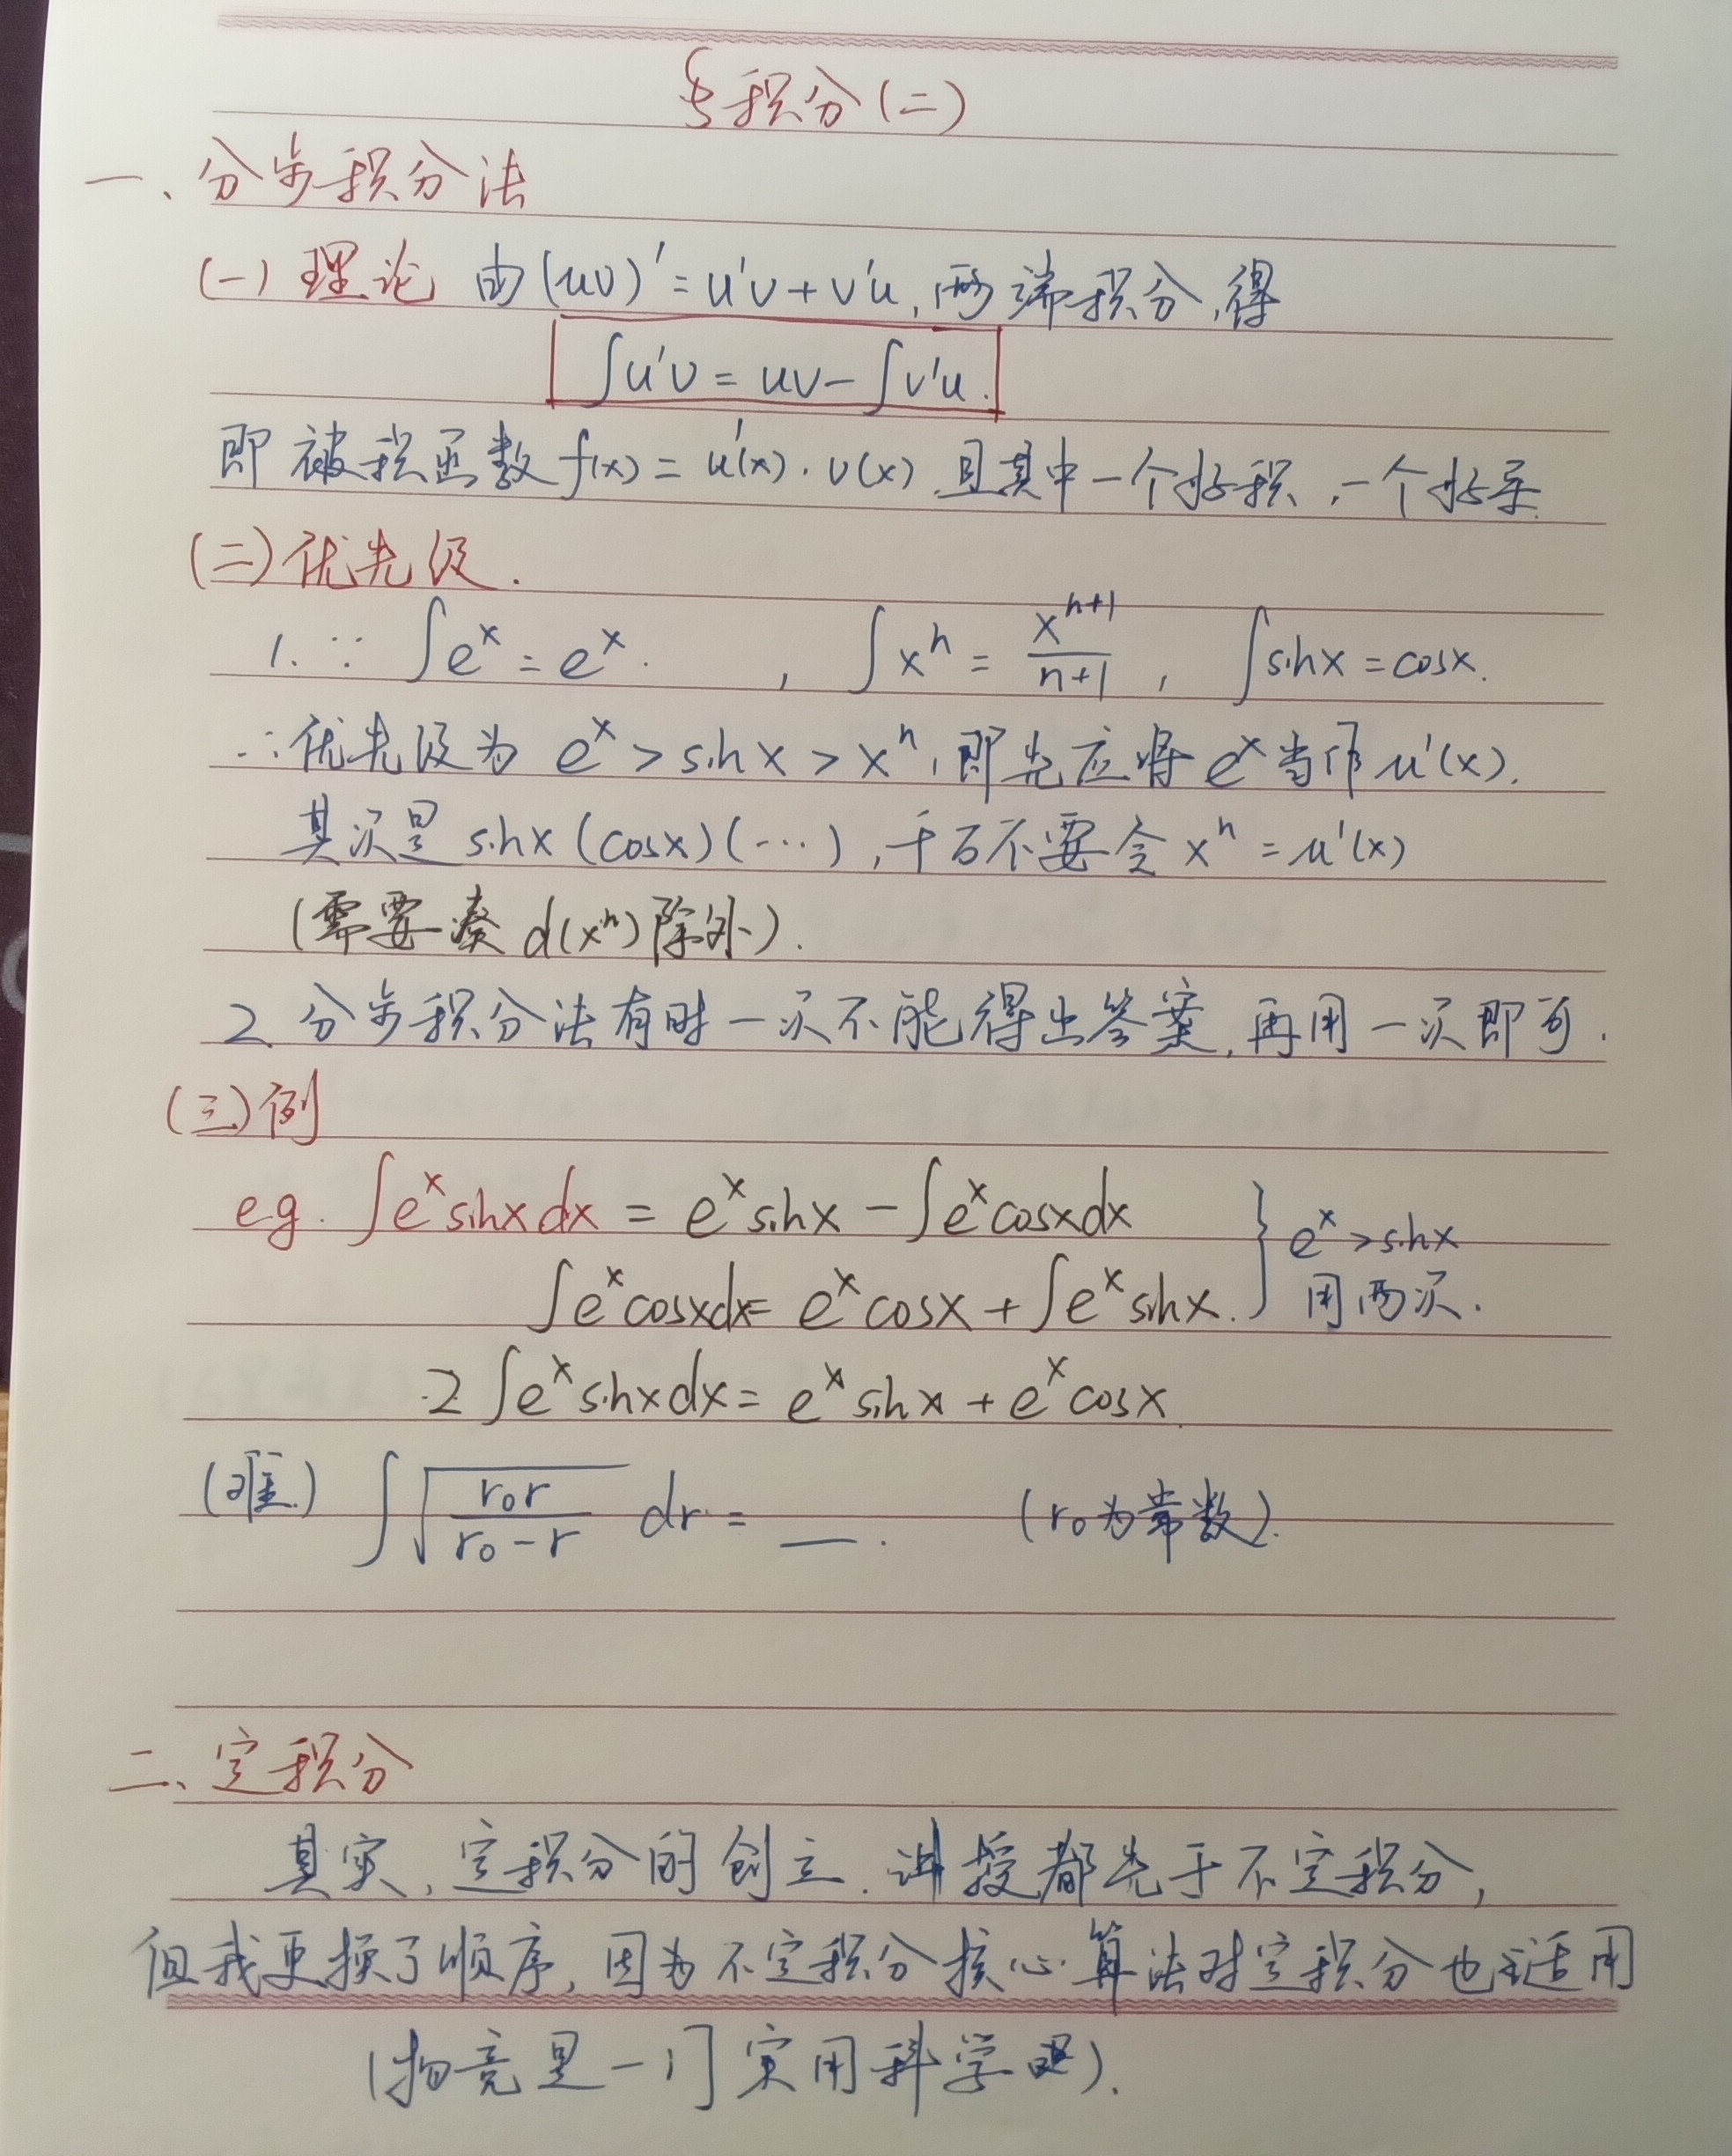 §积分(二)
一、分步积分法
(一)理论 由(uv)′=u′v+v′u,两端积分,得
∫u′v=uv-∫v′u.
即被积函数f(x)=u′(x)·v(x),且其中一个好积,一个好导.
(二)优先级.
1.∵ ∫eˣ=eˣ. , ∫xⁿ=xⁿ⁺¹/(n+1), ∫sinx=cosx.
∴优先级为 eˣ>sinx>xⁿ,即先应将eˣ当作u′(x).
其次是sinx(cosx)(…),千万不要令xⁿ=u′(x)
(需要凑d(xⁿ)除外).
2.分步积分法有时一次不能得出答案,再用一次即可.
(三)例
eg. ∫eˣsinxdx=eˣsinx-∫eˣcosxdx } eˣ>sinx
∫eˣcosxdx=eˣcosx+∫eˣsinx. 用两次.
2∫eˣsinxdx=eˣsinx+eˣcosx.
(难) ∫√(r₀r/(r₀-r)) dr=__. (r₀为常数).
二、定积分
其实,定积分的创立、讲授都先于不定积分,
但我更换了顺序,因为不定积分核心算法对定积分也适用
(物竞是一门实用科学吧).